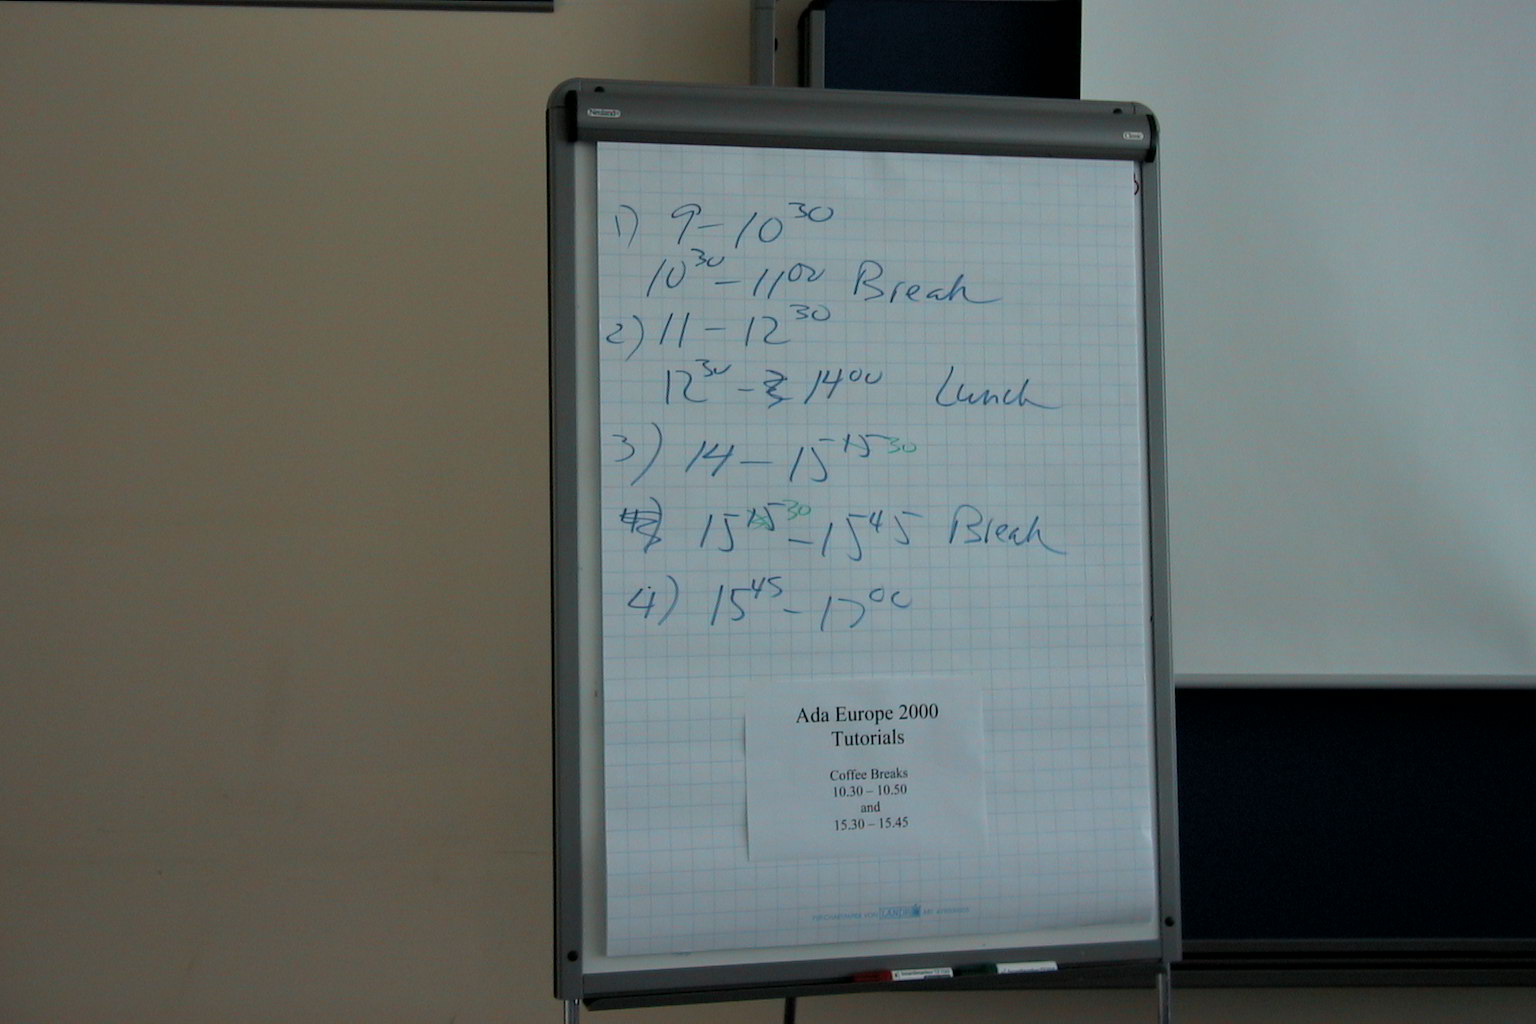 1) 9 – 10 30
10 30 – 11 00 Break
2) 11 – 12 30
12 30 – 14 00 Lunch
3) 14 – 15 15 30
15 15 30 – 15 45 Break
4) 15 45 – 17 00
Ada Europe 2000
Tutorials
Coffee Breaks
10.30 – 10.50
and
15.30 – 15.45